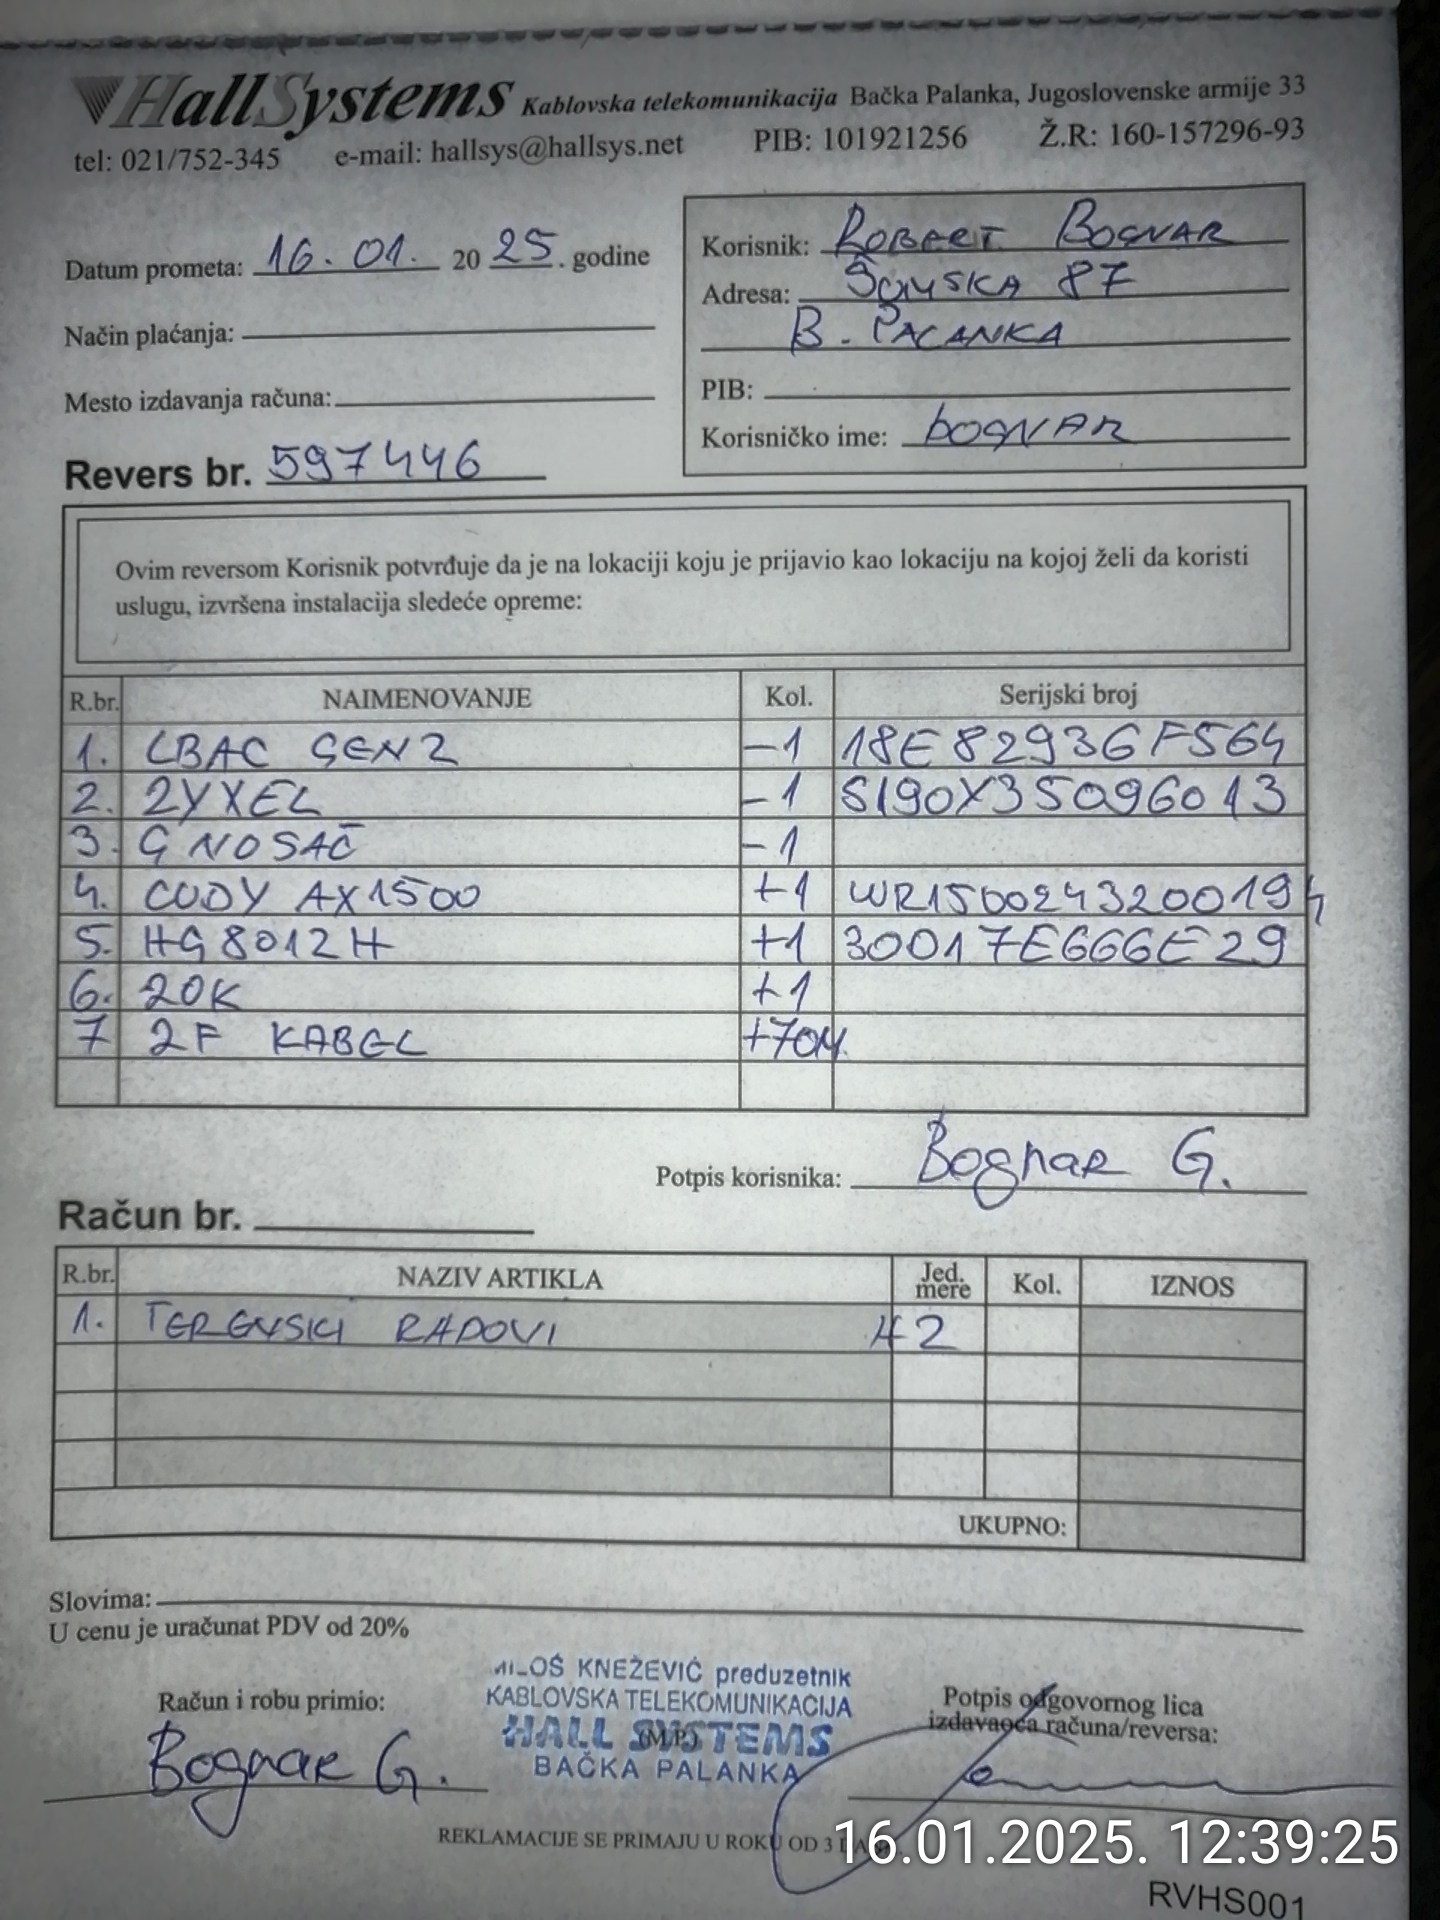 HallSystems Kablovska telekomunikacija Bačka Palanka, Jugoslovenske armije 33
tel: 021/752-345 e-mail: hallsys@hallsys.net PIB: 101921256 Ž.R: 160-157296-93
Datum prometa: 16.01. 20 25. godine
Način plaćanja:
Mesto izdavanja računa:
Revers br. 597446
Korisnik: ROBERT BOGNAR
Adresa: 87
B. PALANKA
PIB:
Korisničko ime: bOGNAR
Ovim reversom Korisnik potvrđuje da je na lokaciji koju je prijavio kao lokaciju na kojoj želi da koristi
uslugu, izvršena instalacija sledeće opreme:
R.br. NAIMENOVANJE Kol. Serijski broj
1. LBAC GEN2 -1 18E82936F564
2. ZYXEL -1 S190X35096013
3. G NOSAČ -1
4. CUDY AX1500 +1 WR1500243200194
5. HG8012H +1 30017E666E29
6. ZOK +1
7 2F KABEL +70M
Potpis korisnika: Bognar G.
Račun br.
R.br. NAZIV ARTIKLA Jed. mere Kol. IZNOS
1. TERENSKI RADOVI H 2
UKUPNO:
Slovima:
U cenu je uračunat PDV od 20%
Račun i robu primio:
Bognar G.
MILOŠ KNEŽEVIĆ preduzetnik
KABLOVSKA TELEKOMUNIKACIJA
HALL SYSTEMS
(M.P.)
BAČKA PALANKA
Potpis odgovornog lica
izdavaoca računa/reversa:
REKLAMACIJE SE PRIMAJU U ROKU OD 3
16.01.2025. 12:39:25
RVHS001